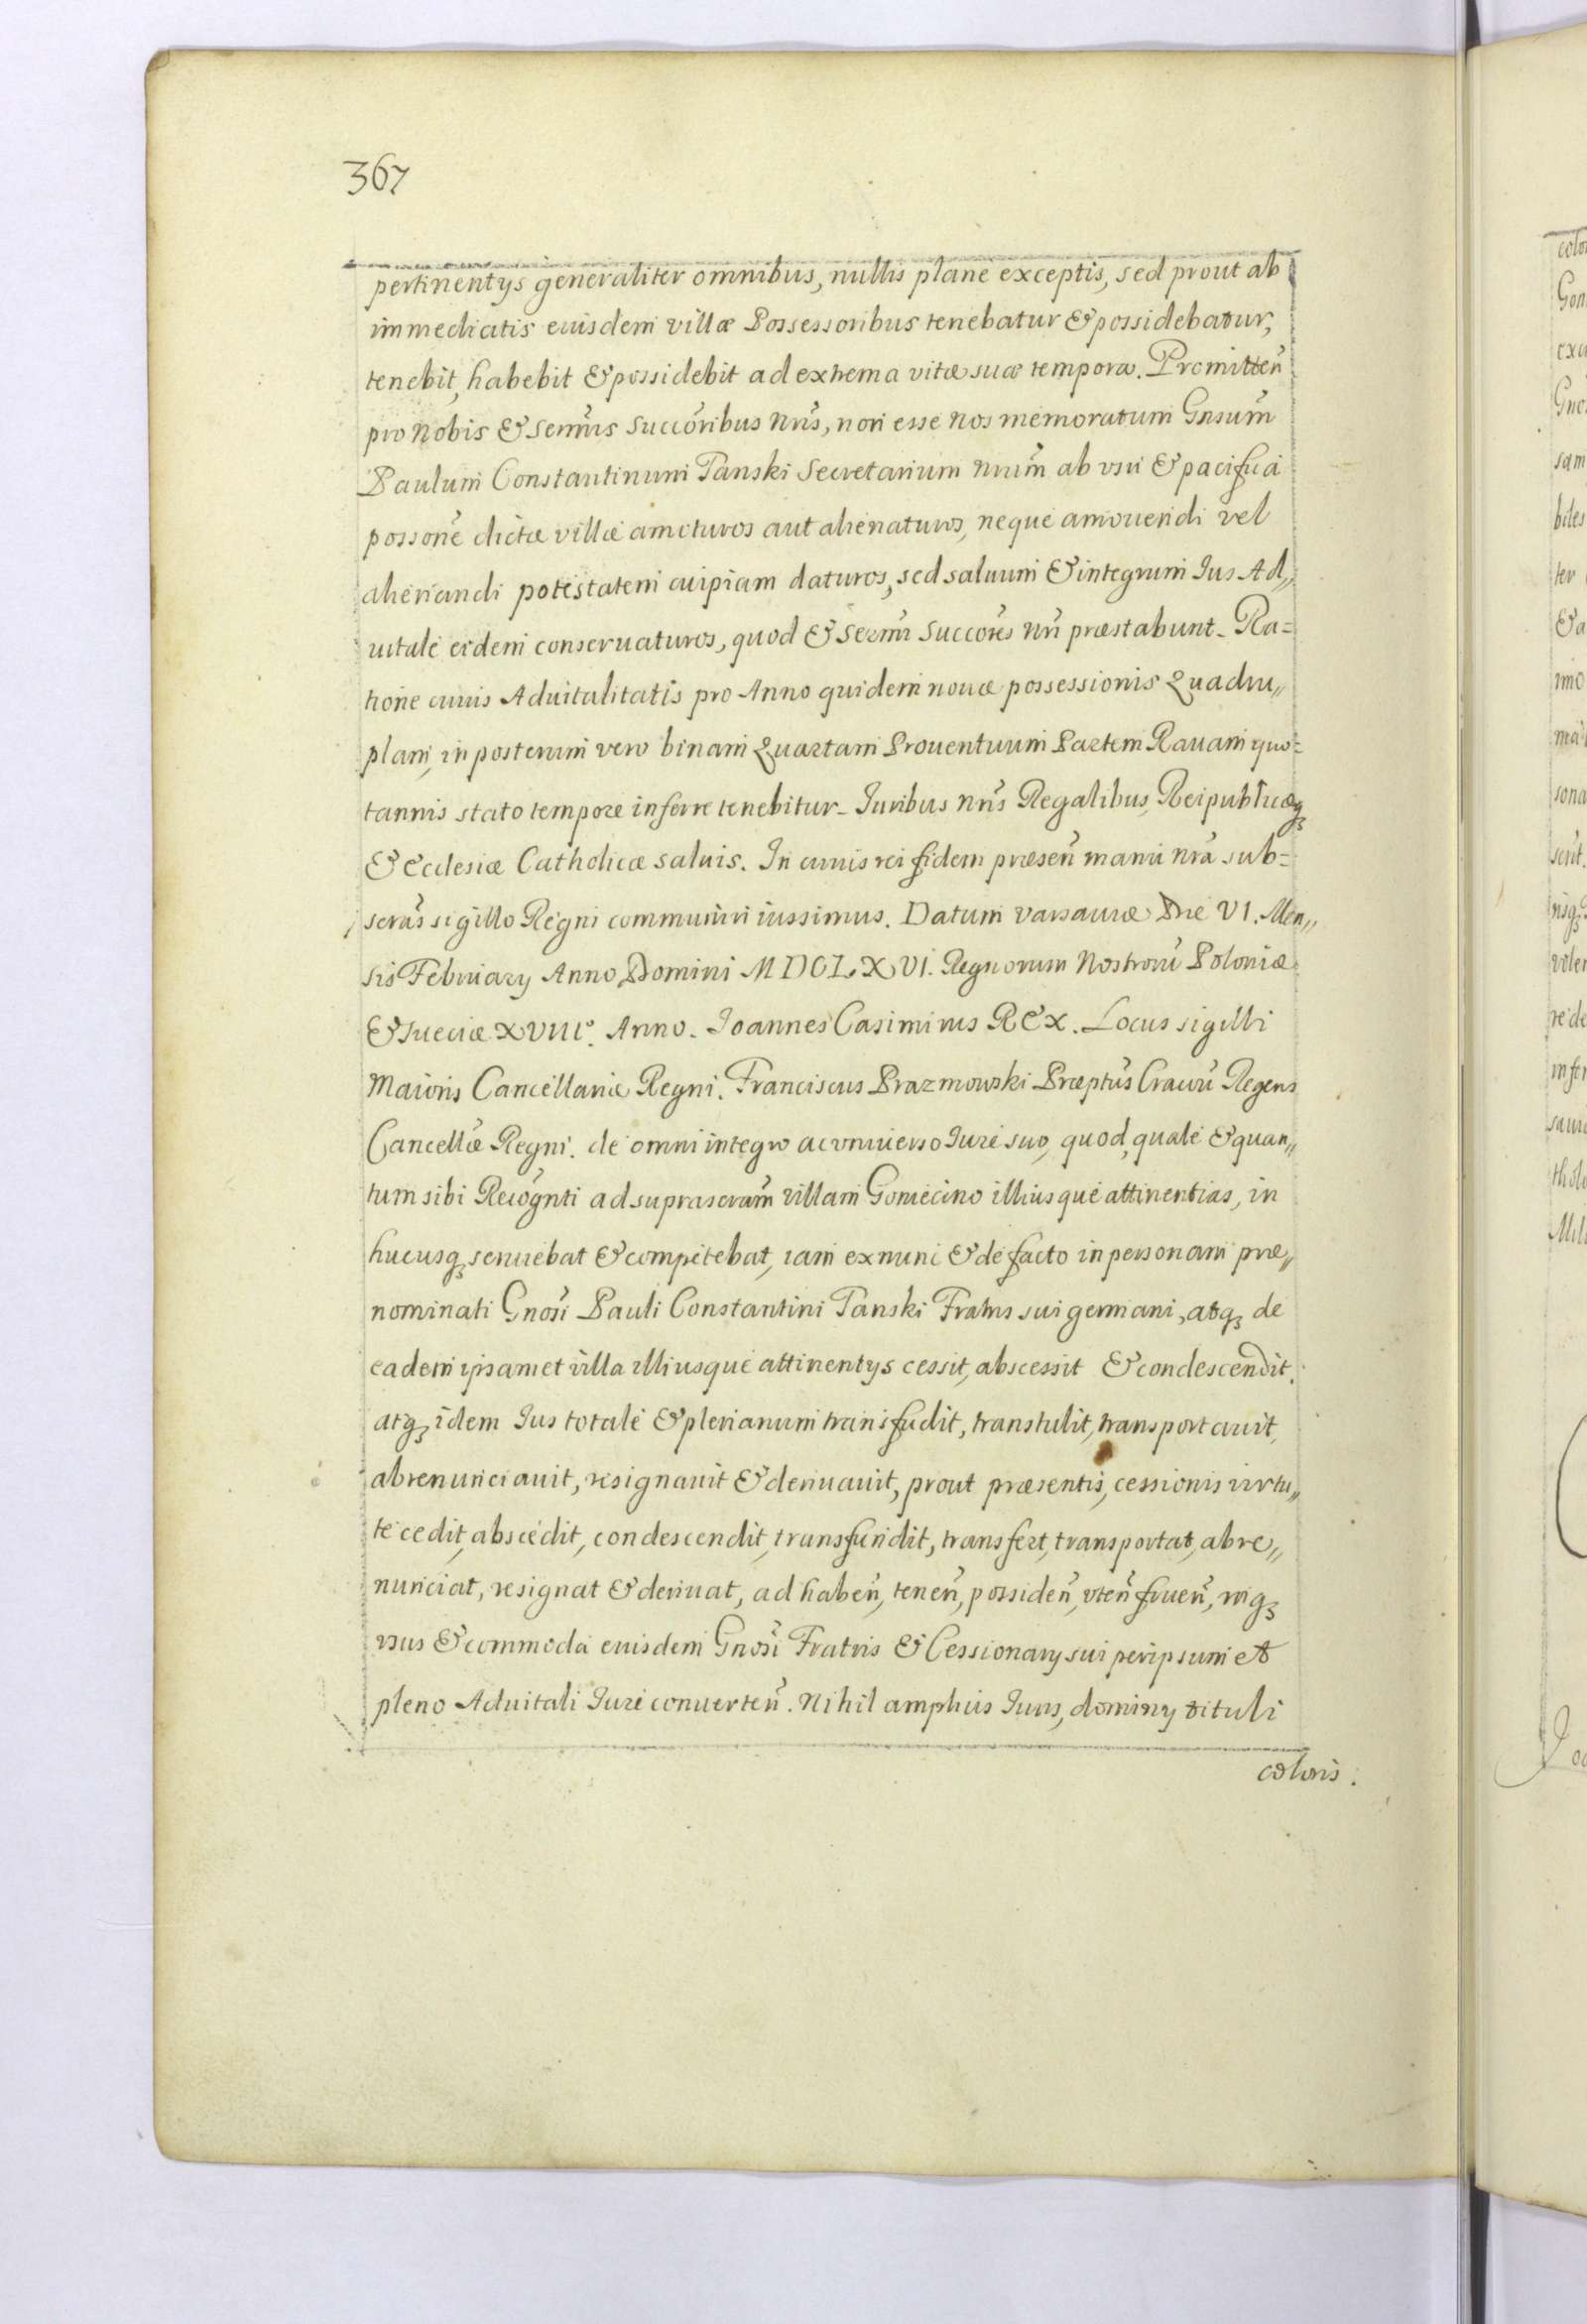 367
pertinentÿs generaliter omnibus, nullis plane exceptis, sed prout ab
immediatis euisdem villæ Possessoribus tenebatur & possidebatur,
tenebit, habebit & possidebit ad extrema vitæ suæ tempora. Promitteñ
pro Nobis & Sermis Succoribus Nris, non esse Nos memoratum Gnsum
Paulum Constantinum Tanski Secretarium Nrum ab vsu & pacifica
possone dictæ villæ amoturos aut alienaturos, neque amouendi vel
alienandi potestatem cuipiam daturos, sed saluum & integrum Ius Ad„
uitale eidem conseruaturos, quod & Sermi Succores Nri præstabunt. Ra=
tione cuius Aduitalitatis pro Anno quidem nouæ possessionis Quadru„
plam, in posterum vero binam Quartam Prouentuum Partem Rauam quo=
tannis stato tempore inferre tenebitur. Iuribus Nris Regalibus, Reipublicæq3
& Ecclesiæ Catholicæ saluis. In cuius rei fidem præseñ manu nra sub=
scras sigillo Regni communiri iussimus. Datum Varsauiæ Die VI. Men„
sis February Anno Domini MDCLXVI. Regnorum Nostroru Poloniæ
& Sueciæ XVIII°. Anno. Joannes Casimirus REX. Locus sigilli
Maioris Cancellariæ Regni. Franciscus Prazmowski Præptus Cracou Regens
Cancellæ Regni. de omni integro ac vniuerso Iure suo, quod, quale & quan„
tum sibi Recognti ad suprascram villam Goniecino illiusque attinentias, in
hucusq3 seruiebat & competebat, iam ex nunc & de facto in personam præ„
nominati Gnosi Pauli Constantini Tanski Fratris sui germani, atq3 de
eadem ipsamet villa illiusque attinentys cessit, abscessit & condescendit.
atq3 idem Ius totale & plenarium transfudit, transtulit, transportauit,
abrenunciauit, resignauit & deriuauit, prout præsentis, cessionis virtu„
te cedit, abscedit, condescendit, transfundit, transfert, transportat, abre„
nunciat, resignat & deriuat, ad habeñ, teneñ, possideñ, vteñ frueñ, inq3
vsus & commoda euisdem Gnosi Fratris & Cessionary sui per ipsum et
pleno Aduitali Iure conuerteñ. Nihil amplius Iuris, dominy tituli
coloris.